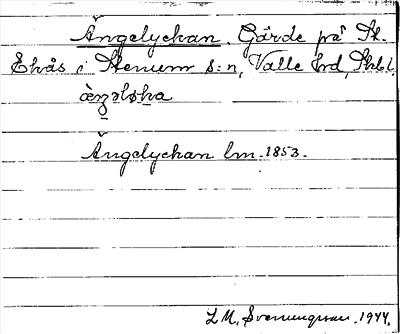 Ängelyckan. Gärde på St.
Ekås i Stenum s:n, Valle hrd, Skbl.
Ängelyckan lm. 1853.
L M, Svenungsson. 1944.